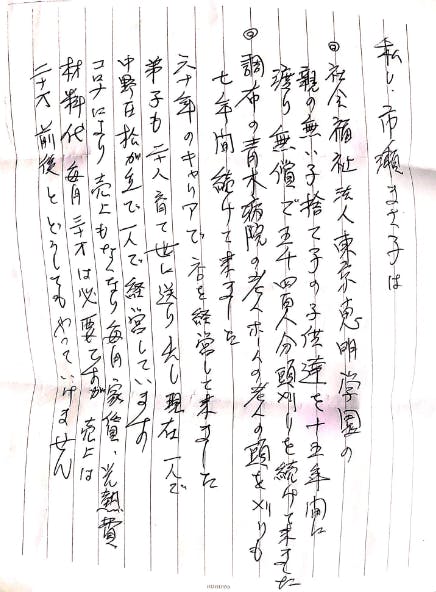 私し市瀬まさ子は
◎社会福祉法人東京恵明学園の
親の無い子捨て子の子供達を十五年間に
渡り無償で五千四百人分頭刈りを続けて来ました
◎調布の青木病院の老人ホームの老人の頭を刈りも
七年間続けて来ました
六十年のキャリアで店を経営して来ました
弟子も二十人育て世に送り出し現在一人で
中野区松が丘で一人で経営しています
コロナにより売上もなくなり毎月家賃、光熱費
材料代毎月三十万は必要ですが売上は
二十万前後とどうしてもやっていけません